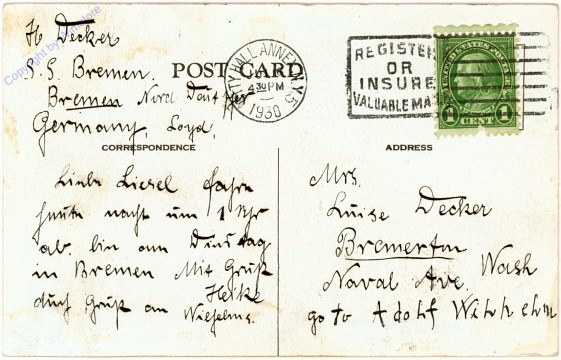 Copyright by
H Decker
S. S. Bremen.
Bremen Nord Deutscher
Germany Loyd.
POST CARD
CITY HALL ANNEX N.Y. 5
4 30 PM
1930
REGISTER
OR
INSURE
VALUABLE MA
UNITED STATES POSTAGE
1 CENT 1
CORRESPONDENCE
ADDRESS
Liebe Liesel fahre
heute nacht um 1 Uhr
ab. bin am Dienstag
in Bremen Mit Gruß
Heike
durch Gruß an
Mrs.
Luise Decker
Bremerton
Naval Ave. Wash
go to Adolf Wilhelm